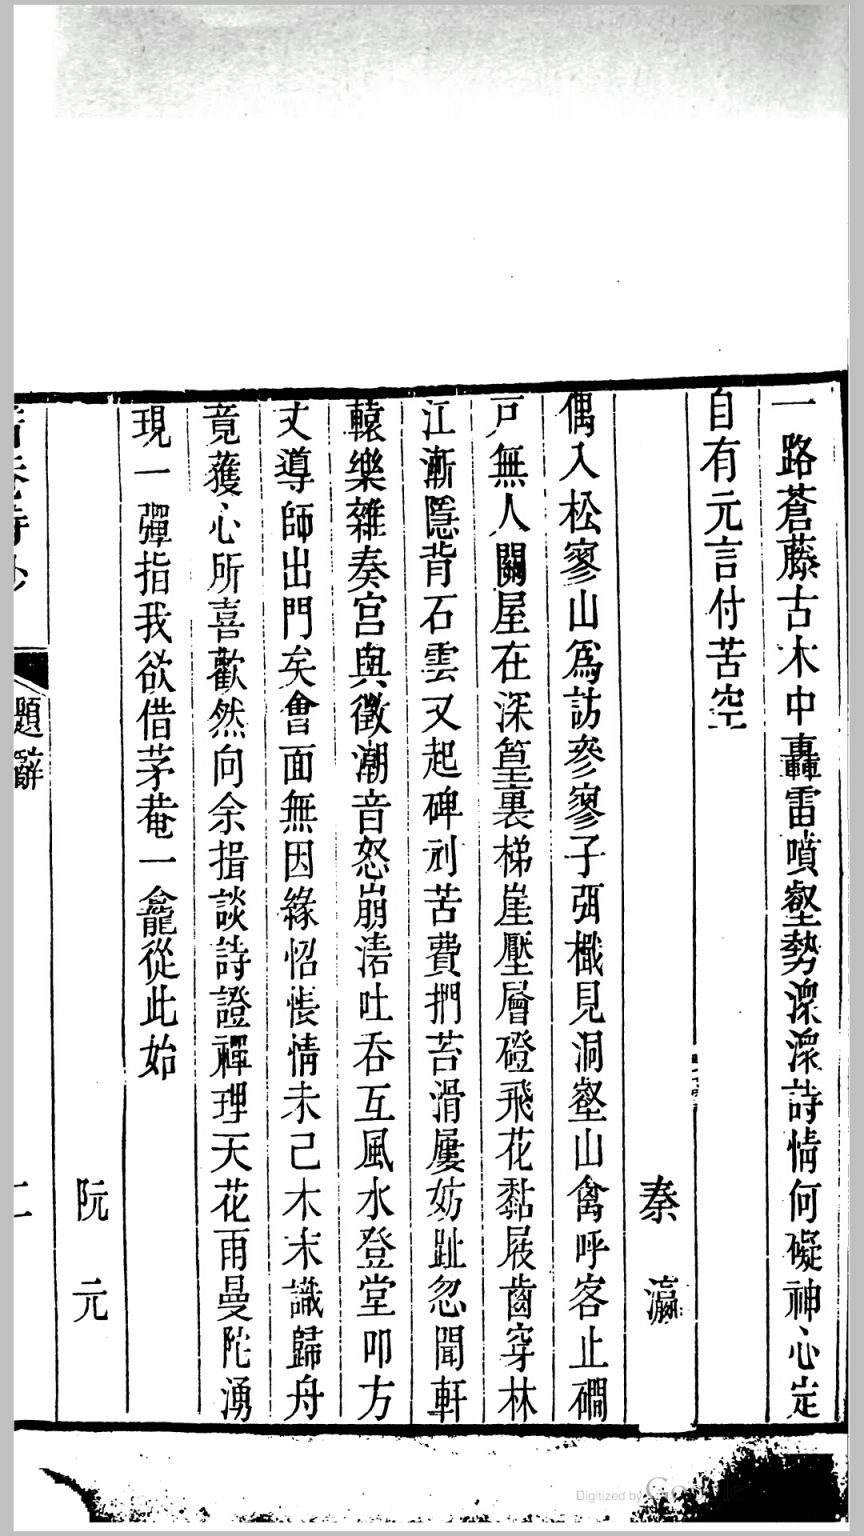 一路蒼藤古木中轟雷噴壑勢潨潨詩情何礙神心定
自有元言付苦空
秦瀛
偶入松寥山爲訪參寥子弭檝見洞壑山禽呼客止磵
戸無人關屋在深篁裏梯崖壓層磴飛花黏屐齒穿林
江漸隱背石雲又起碑刓苦費捫苔滑屢妨趾忽聞軒
轅樂雜奏宫與徵潮音怒崩濤吐吞互風水登堂叩方
丈導師出門矣會面無因緣怊悵情未已木末識歸舟
竟獲心所喜歡然向余揖談詩證禪理天花雨曼陀湧
現一彈指我欲借茅菴一龕從此始
阮元
題辭
二
Digitized by Google